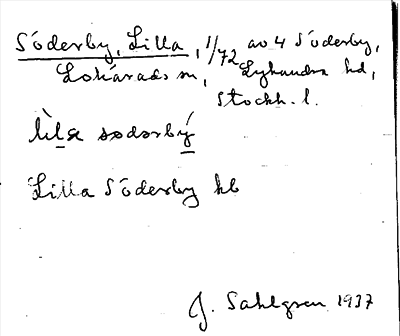 Söderby, Lilla, 1/72 av 4 Söderby,
Lohärads sn, Lyhundra hd,
Stockh. l.
lìlα sødərbý
Lilla Söderby kb
J. Sahlgren 1937